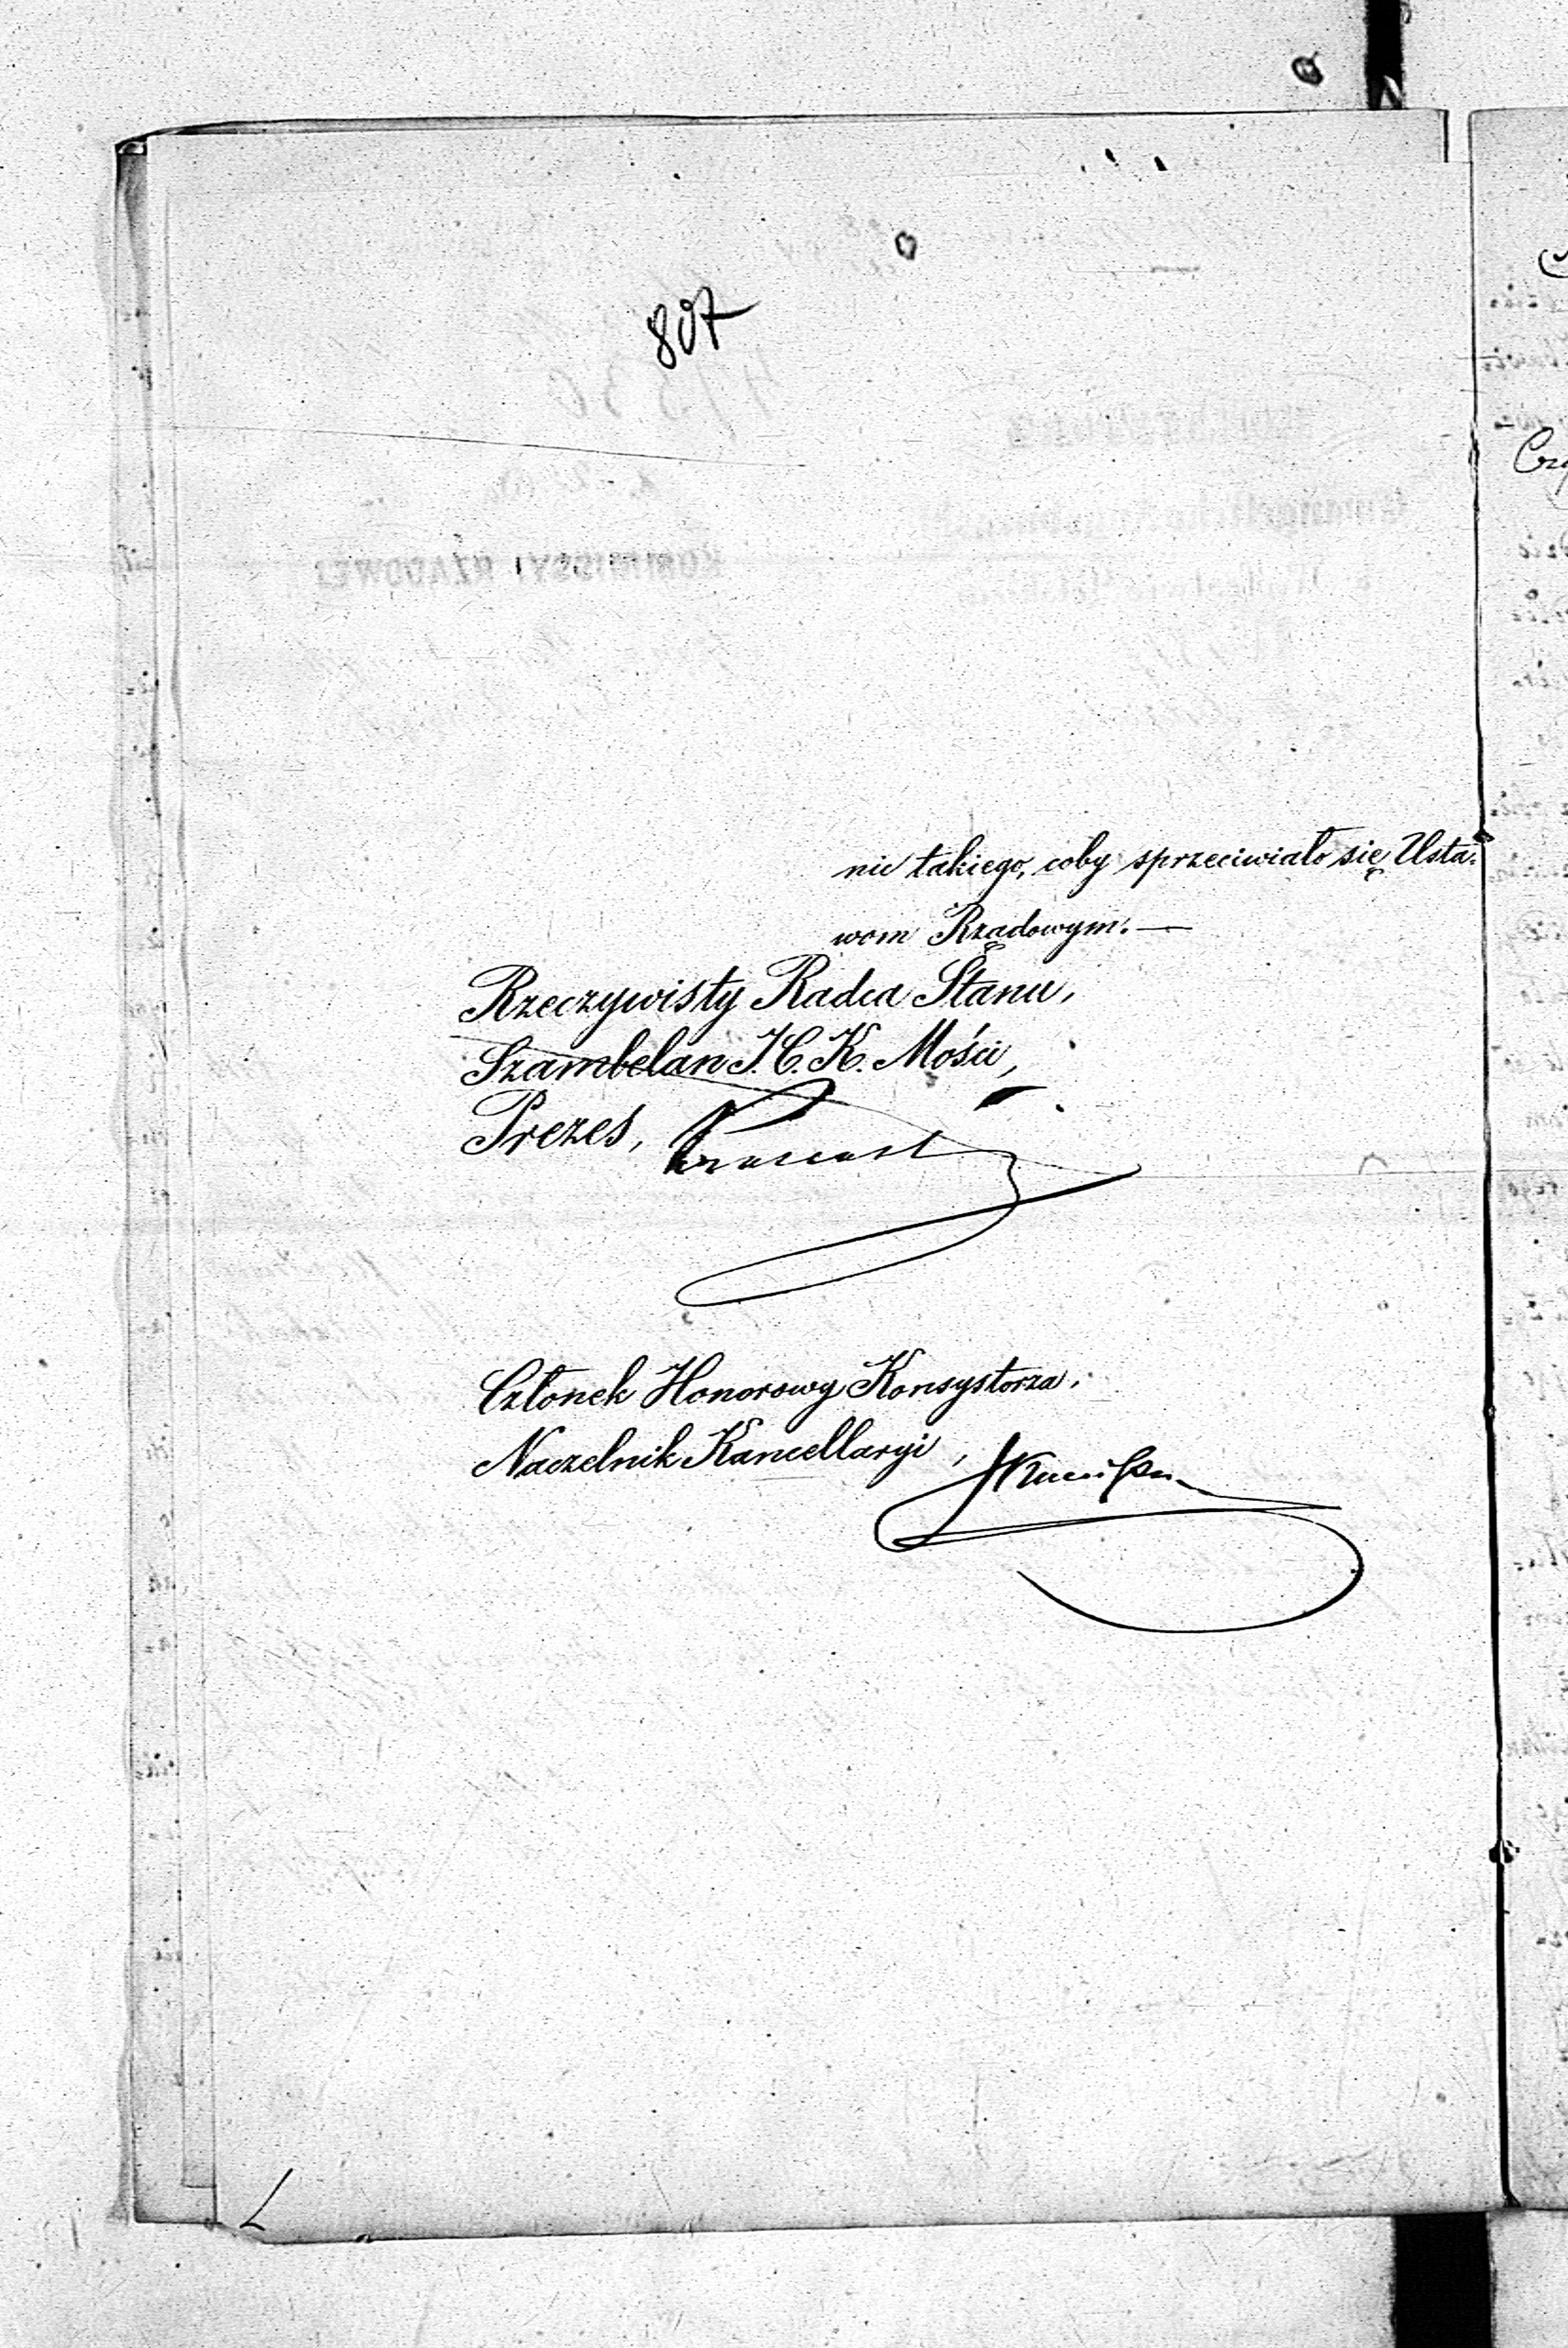 807
nic takiego, coby sprzeciwiało się Usta-
wom Rządowym. —
Rzeczywisty Radca Stanu,
Szambelan J. C. K. Mości,
Prezes,
Członek Honorowy Konsystorza,
Naczelnik Kancellaryi,